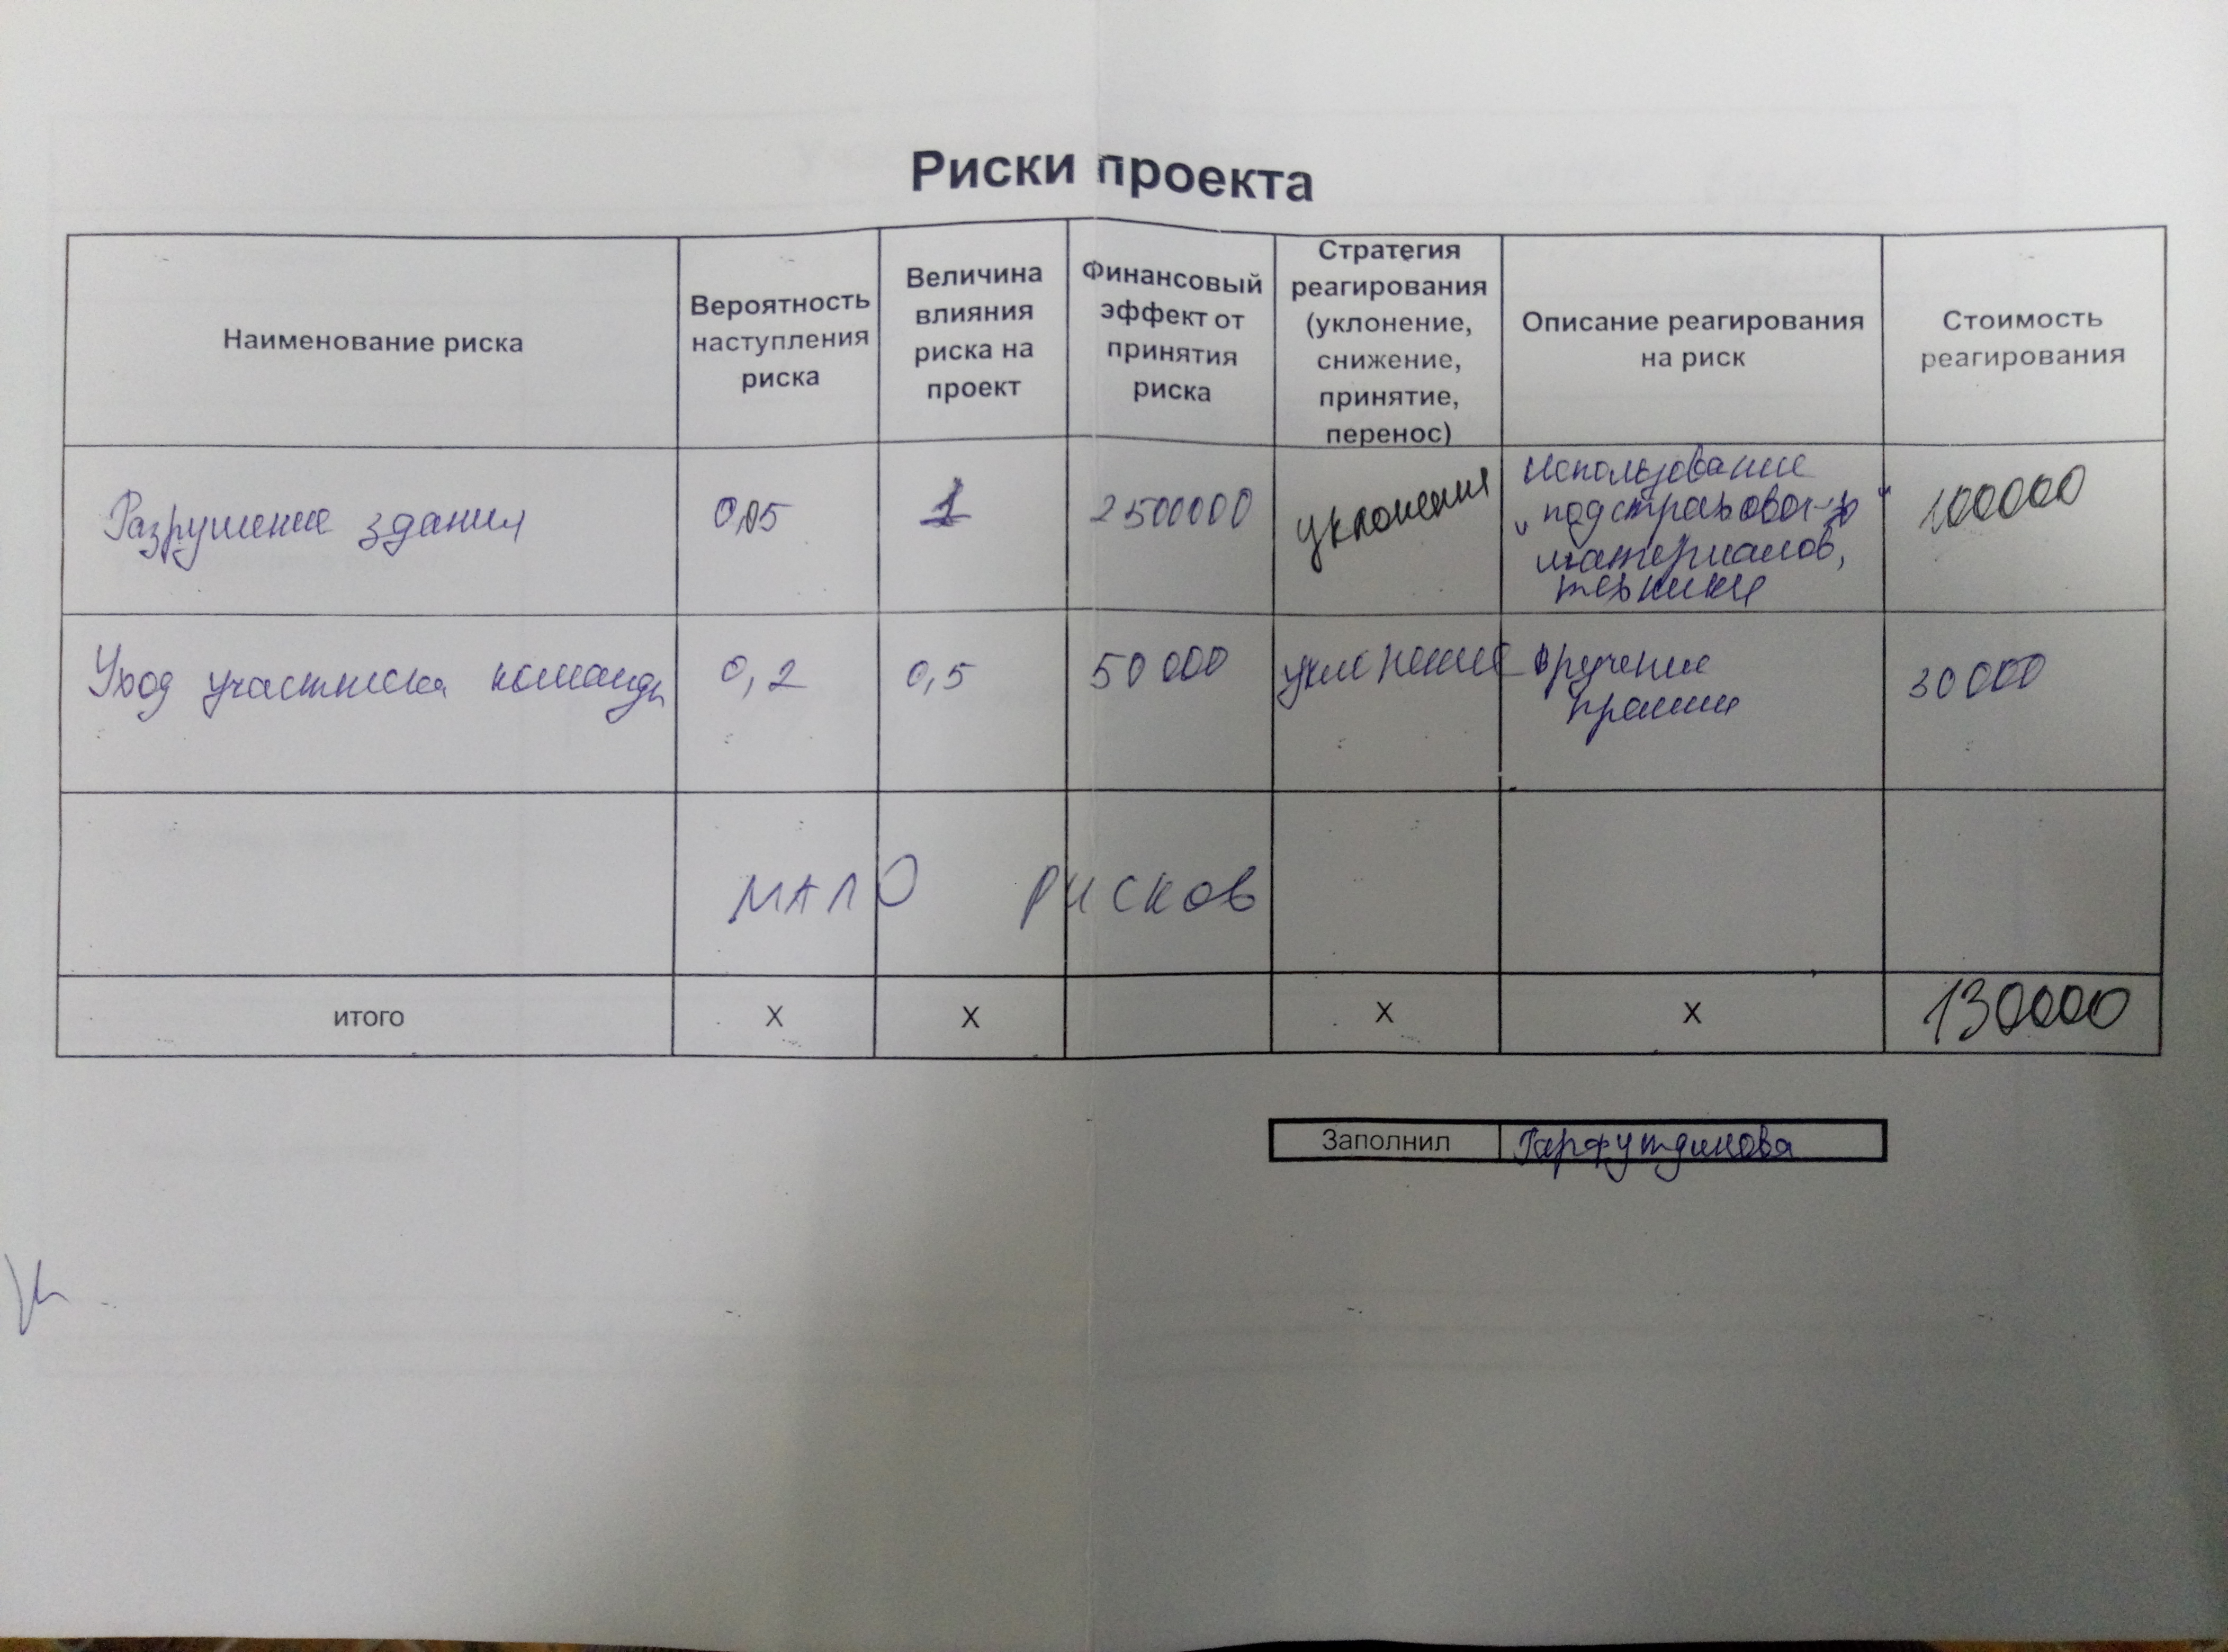 Риски проекта
Наименование риска
Вероятность
наступления
риска
Величина
влияния
риска на
проект
Финансовый
эффект от
принятия
риска
Стратегия
реагирования
(уклонение,
снижение,
принятие,
перенос)
Описание реагирования
на риск
Стоимость
реагирования
Разрушение здания
0,05
1
2500000
уклонения
Использование
материалов,
техники
100000
Уход участника команды
0,2
0,5
50 000
уклонение
вручение
премии
30 000
МАЛО РИСКОВ
итого
X
X
X
X
130000
Заполнил
Гарфутдинова